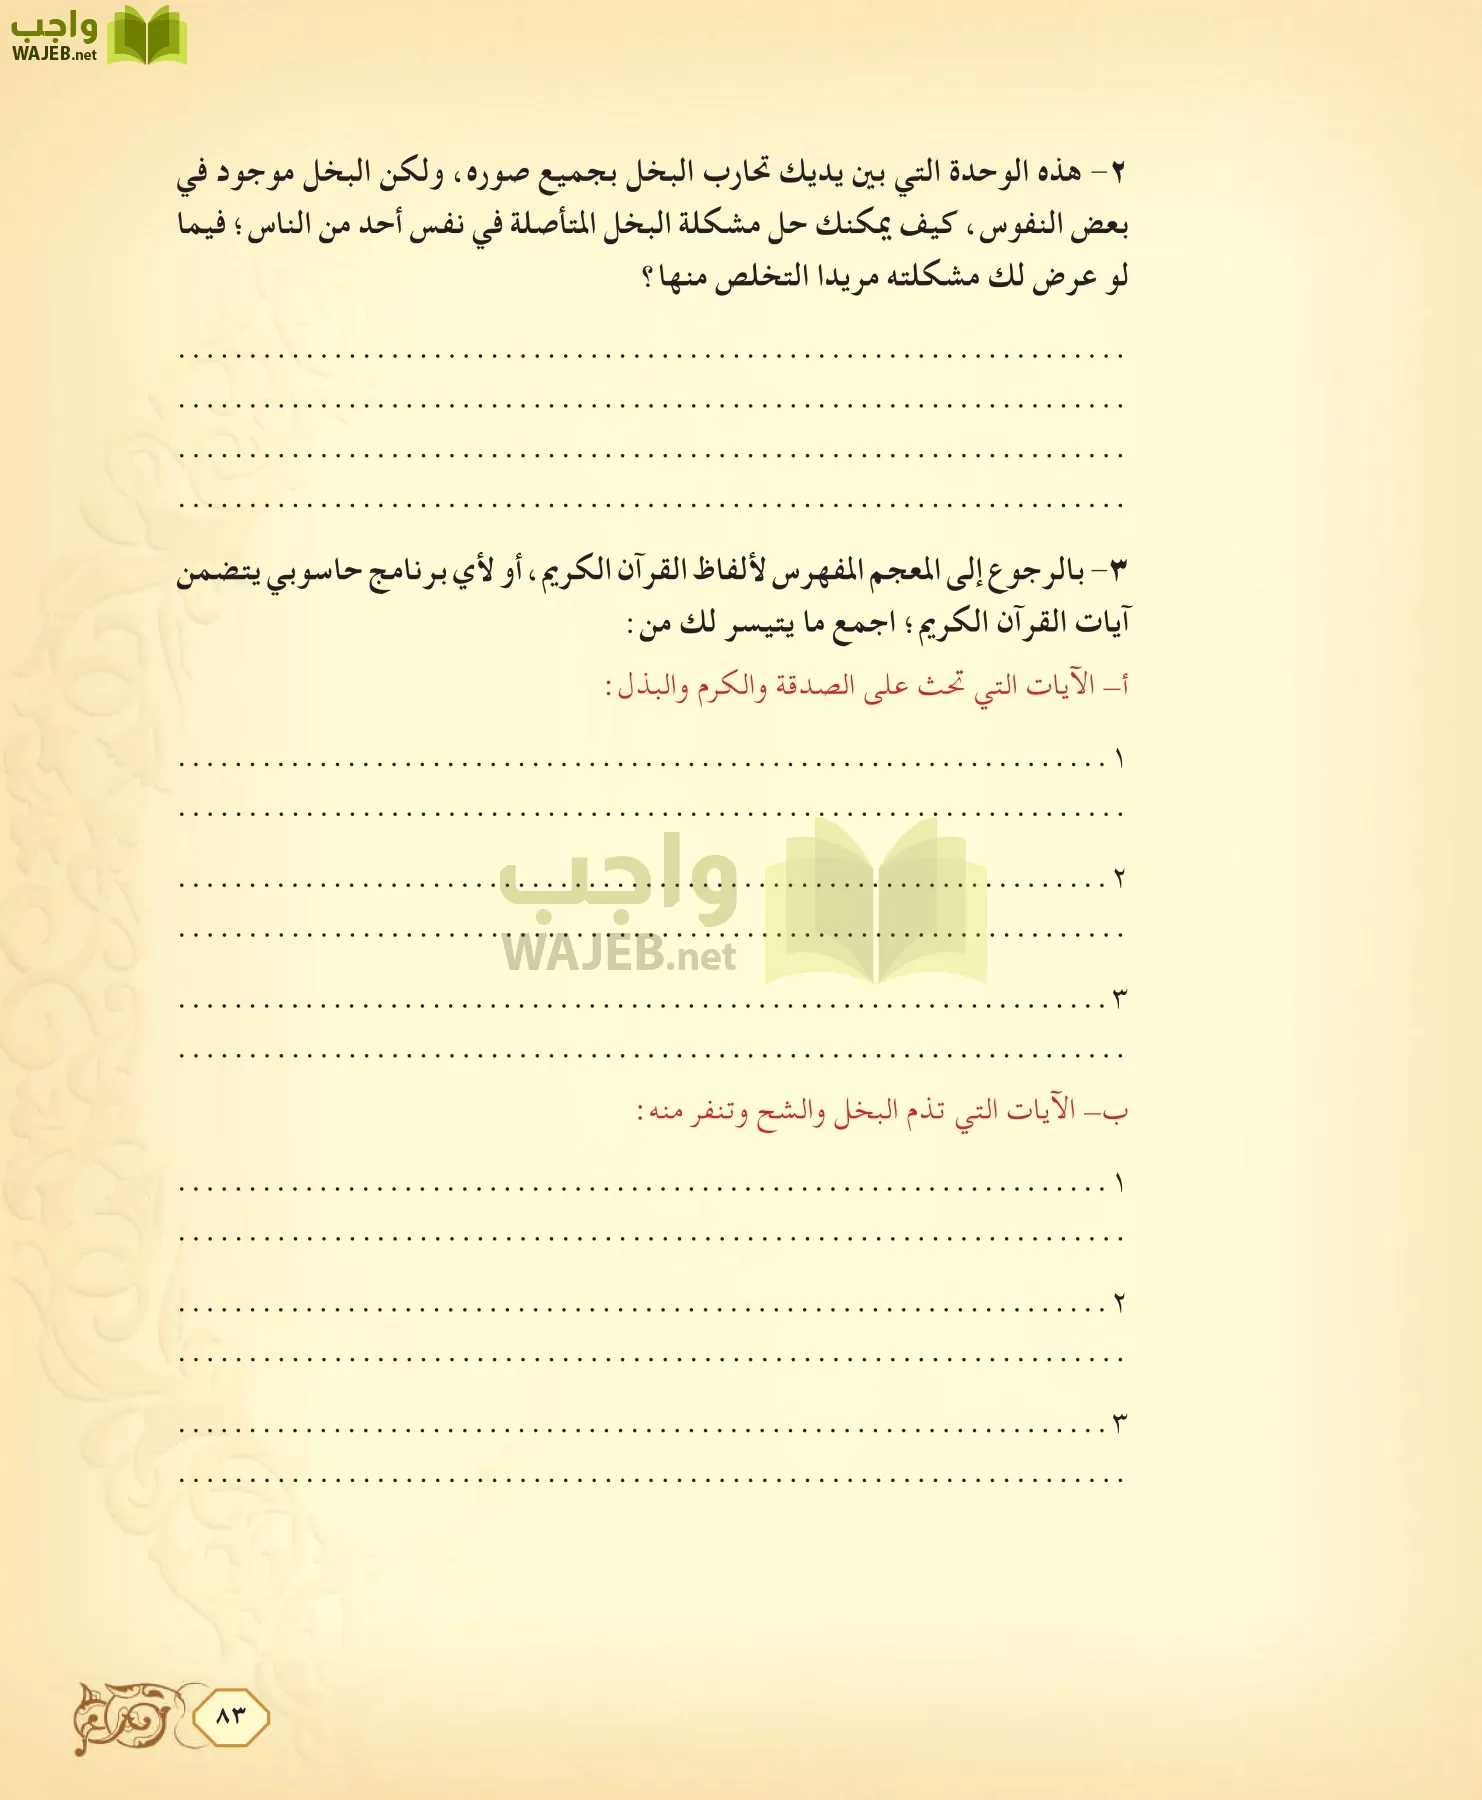 واجب
WAJEB.net
٢- هذه الوحدة التي بين يديك تحارب البخل بجميع صوره، ولكن البخل موجود في
بعض النفوس، كيف يمكنك حل مشكلة البخل المتأصلة في نفس أحد من الناس؛ فيما
لو عرض لك مشكلته مريدا التخلص منها؟
................................................................
................................................................
................................................................
................................................................
٣- بالرجوع إلى المعجم المفهرس لألفاظ القرآن الكريم، أو لأي برنامج حاسوبي يتضمن
آيات القرآن الكريم؛ اجمع ما يتيسر لك من:
أ- الآيات التي تحث على الصدقة والكرم والبذل:
١ ................................................................
................................................................
٢ ................................................................
................................................................
واجب
WAJEB.net
٣ ................................................................
................................................................
ب- الآيات التي تذم البخل والشح وتنفر منه:
١ ................................................................
................................................................
٢ ................................................................
................................................................
٣ ................................................................
................................................................
٨٣